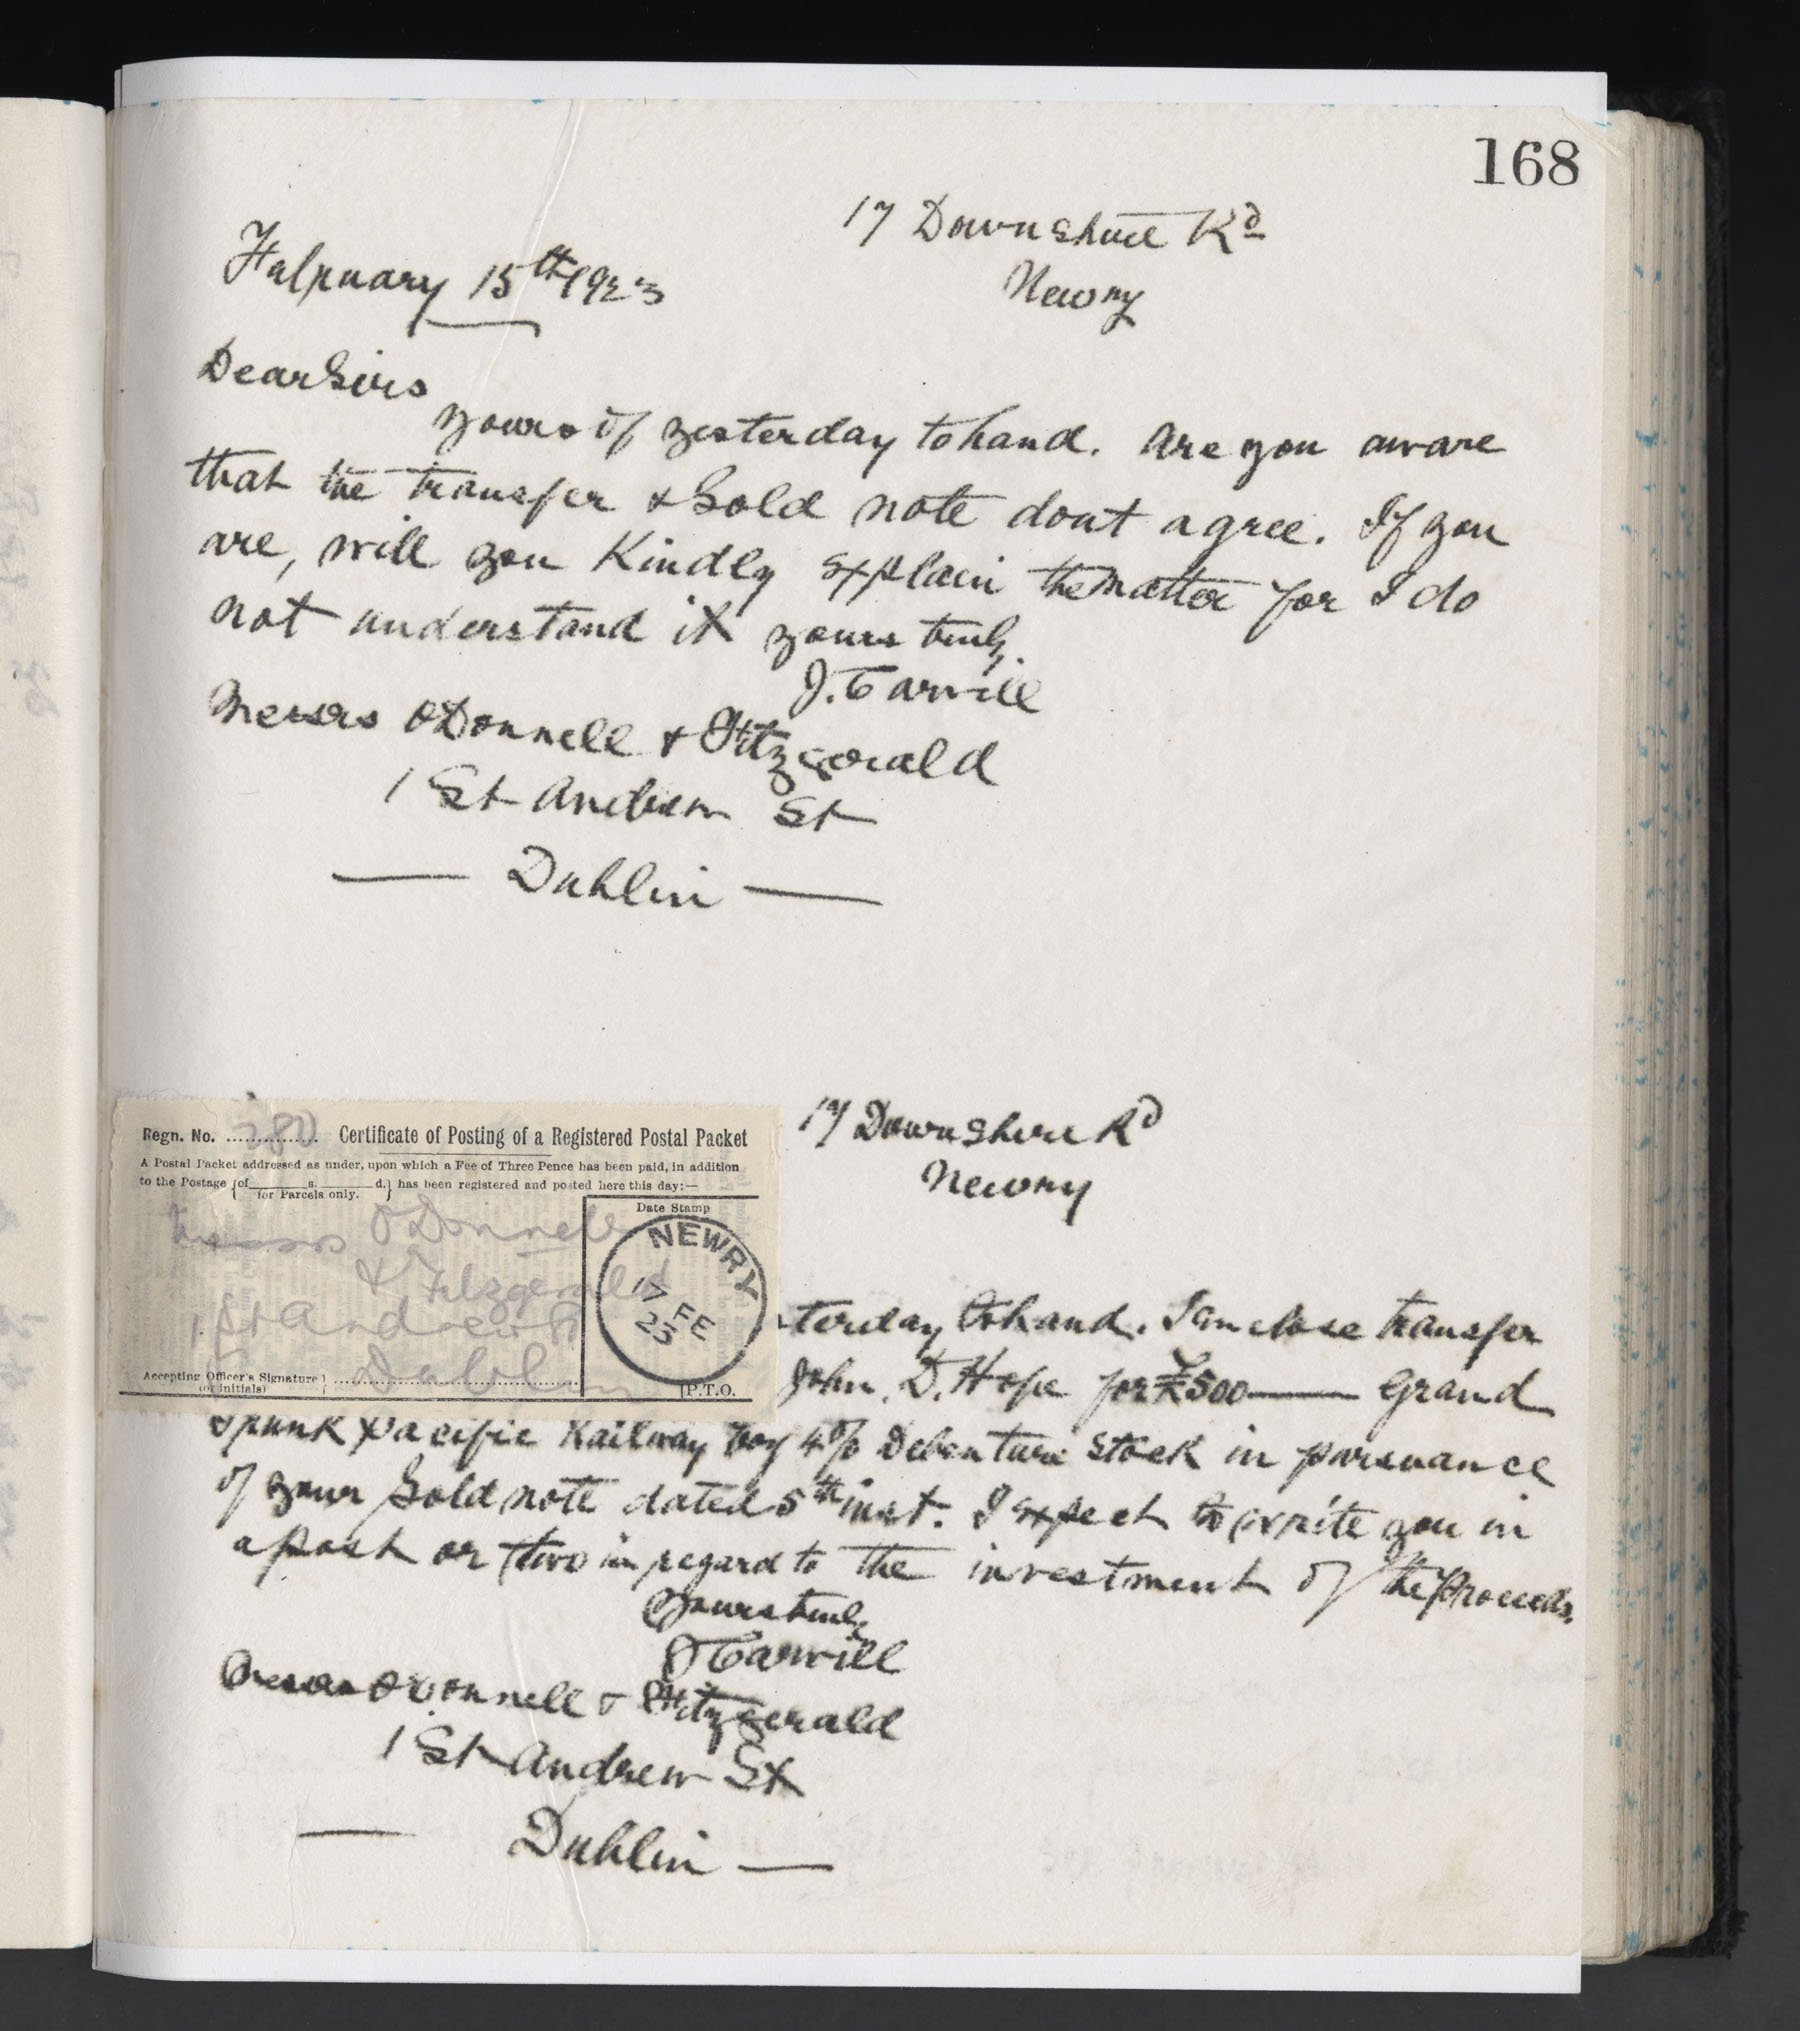 168
17 Downshire Rd
Newry
February 15th 1923
Dear Sirs
yours of yesterday to hand. Are you aware
that the transfer & Sold note dont agree. If you
are, will you Kindly explain the matter for I do
not understand it yours truly,
J. Carvill
Messrs O'Donnell & Fitzgerald
1 St Andrew St
— Dublin —
17 Downshire Rd
Newry
Regn. No. 380 Certificate of Posting of a Registered Postal Packet
A Postal Packet addressed as under, upon which a Fee of Three Pence has been paid, in addition
to the Postage {of s. d. for Parcels only.} has been registered and posted here this day:—
Date Stamp
Messrs O'Donnell
& Fitzgerald
1 St Andrew St
Dublin
NEWRY
17 FE
23
Accepting Officer's Signature (or initials)
P.T.O.
terday to hand. I enclose transfer
John. D. Hope for £500 — Grand
Trunk Pacific Railway Coy 4% Debenture Stock in pursuance
of your Sold note dated 5th inst. I expect to write you in
a post or two in regard to the investment of the proceeds.
Yours truly
J Carvill
Messrs O'Donnell & Fitzgerald
1 St Andrew St
— Dublin —